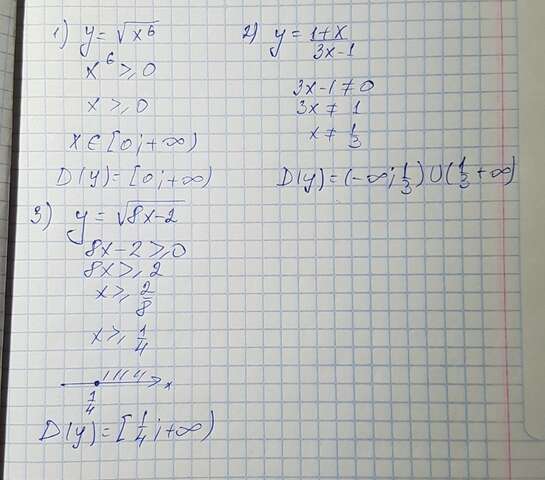 1) y = √x⁶
x⁶ ≥ 0
x ≥ 0
x ∈ [0; +∞)
D(y) = [0; +∞)
2) y = (1+x)/(3x-1)
3x-1 ≠ 0
3x ≠ 1
x ≠ 1/3
D(y) = (-∞; 1/3) ∪ (1/3 +∞)
3) y = √8x-2
8x-2 ≥ 0
8x ≥ 2
x ≥ 2/8
x ≥ 1/4
x
1/4
D(y) = [1/4; +∞)